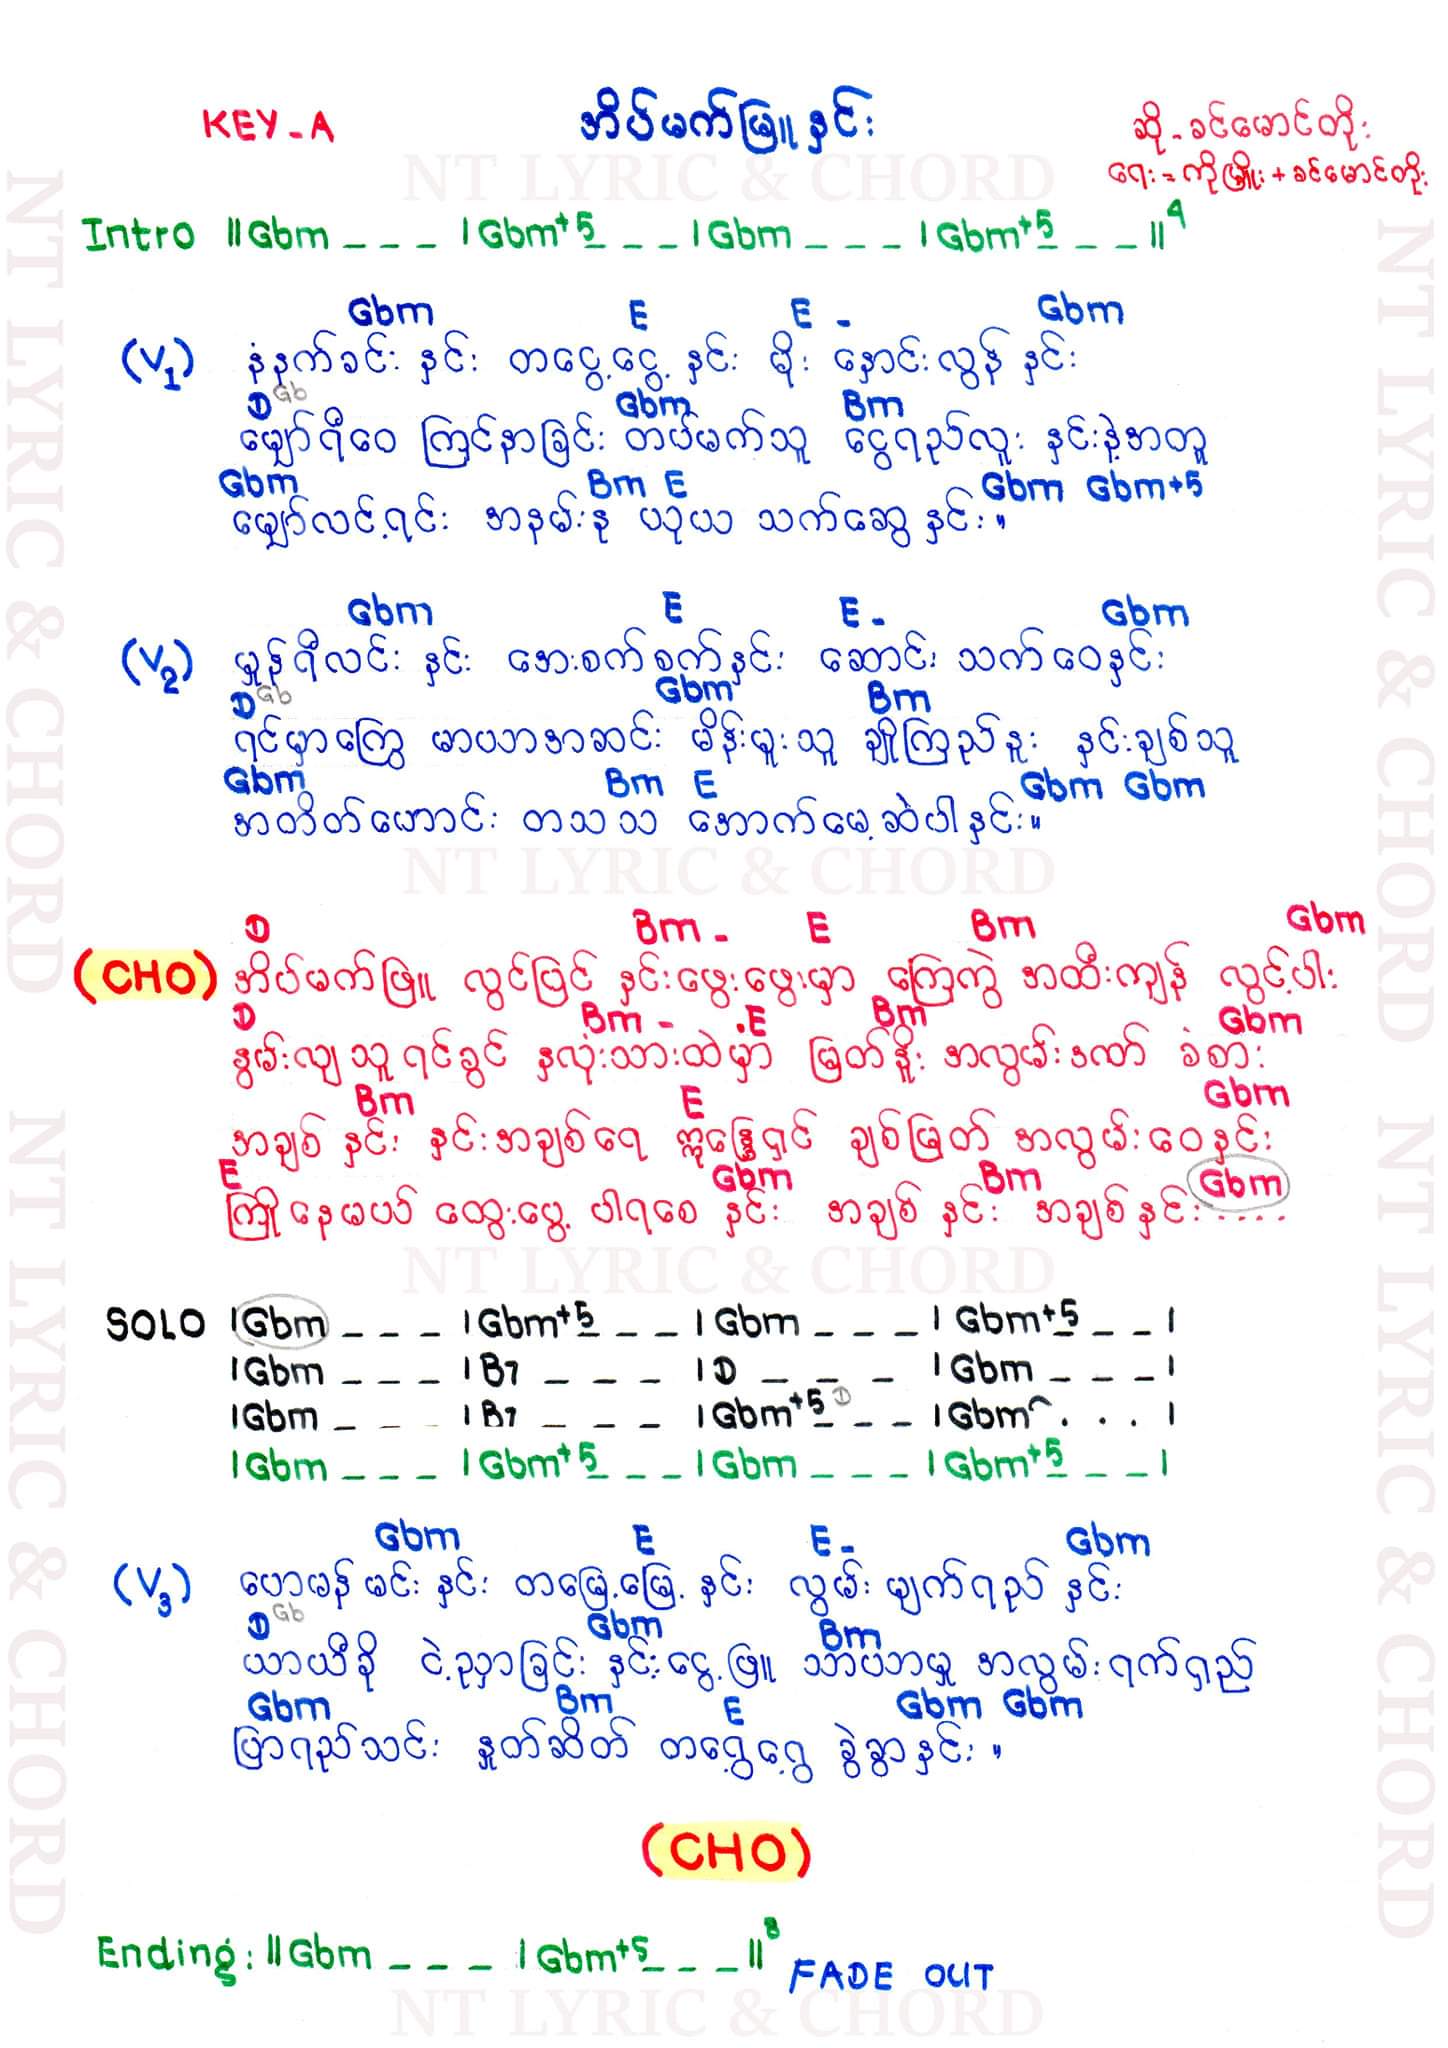 KEY - A
အိပ်မက်ဖြူနှင်း
ဆို - ခင်မောင်တိုး
ရေး = ကိုမြှိုး + ခင်မောင်တိုး
NT LYRIC & CHORD
Intro ||Gbm _ _ _ | Gbm+5 _ _ _ | Gbm _ _ _ | Gbm+5 _ _ _ ||4
Gbm E E - Gbm
(V1) နံနက်ခင်း နှင်း တငွေ့ငွေ့ နှင်း မိုး နှောင်းလွန် နှင်း
D Gb Gbm Bm
မျှော်ရီဝေ ကြင်နာခြင်း တပ်မက်သူ ငွေရည်လူး နှင်းနဲ့အတူ
Gbm Bm E Gbm Gbm+5
မျှော်လင့်ရင်း အနမ်းနု ပဒုယ သက်ဆွေ နှင်း။
Gbm E E - Gbm
(V2) မှုန်ရီလင်း နှင်း အေးစက်စက်နှင်း ဆောင်း သက်ဝေနှင်း
D Gb Gbm Bm
ရင်မှာကြွေ မာယာအဆင်း မိန်းမူးသူ ချိုကြည်နူး နှင်းချစ်သူ
Gbm Bm E Gbm Gbm
အတိတ်ဟောင်း တသသ အောက်မေ့ဆဲပါနှင်း။
NT LYRIC & CHORD
D Bm - E Bm Gbm
(CHO) အိပ်မက်ဖြူ လွင်ပြင် နှင်းဖွေးဖွေးမှာ ကြေကွဲ အထီးကျန် လွင့်ပါး
D Bm - . E Bm Gbm
နွမ်းလျသူ ရင်ခွင် နှလုံးသားထဲမှာ မြတ်နိုး အလွမ်းဒဏ် ခံစား
Bm E Gbm
အချစ် နှင်း နှင်းအချစ်ရေ ဣန္ဒြေရှင် ချစ်မြတ် အလွမ်းဝေနှင်း
E Gbm Bm Gbm
ကြိုနေမယ် ထွေးပွေ့ ပါရစေ နှင်း အချစ် နှင်း အချစ်နှင်း ....
NT LYRIC & CHORD
SOLO | Gbm _ _ _ | Gbm+5 _ _ _ | Gbm _ _ _ | Gbm+5 _ _ _ |
| Gbm _ _ _ | B7 _ _ _ | D _ _ _ | Gbm _ _ _ |
| Gbm _ _ _ | B7 _ _ _ | Gbm+5 D _ _ _ | Gbm . . . |
| Gbm _ _ _ | Gbm+5 _ _ _ | Gbm _ _ _ | Gbm+5 _ _ _ |
Gbm E E - Gbm
(V3) ဟေမန် မင်း နှင်း တမြေ့မြေ့ နှင်း လွမ်း မျက်ရည် နှင်း
D Gb Gbm Bm
ယာယီခို ငဲ့ညှာခြင်း နှင်းငွေ့ဖြူ သာယာမှု အလွမ်းရက်ရှည်
Gbm Bm E Gbm Gbm
ပြာရည်သင်း နှုတ်ဆိတ် တရွေ့ရွေ့ ခွဲခွာနှင်း။
(CHO)
Ending: || Gbm _ _ _ | Gbm+5 _ _ _ ||8 FADE OUT
NT LYRIC & CHORD
NT LYRIC & CHORD
NT LYRIC & CHORD
NT LYRIC & CHORD
NT LYRIC & CHORD